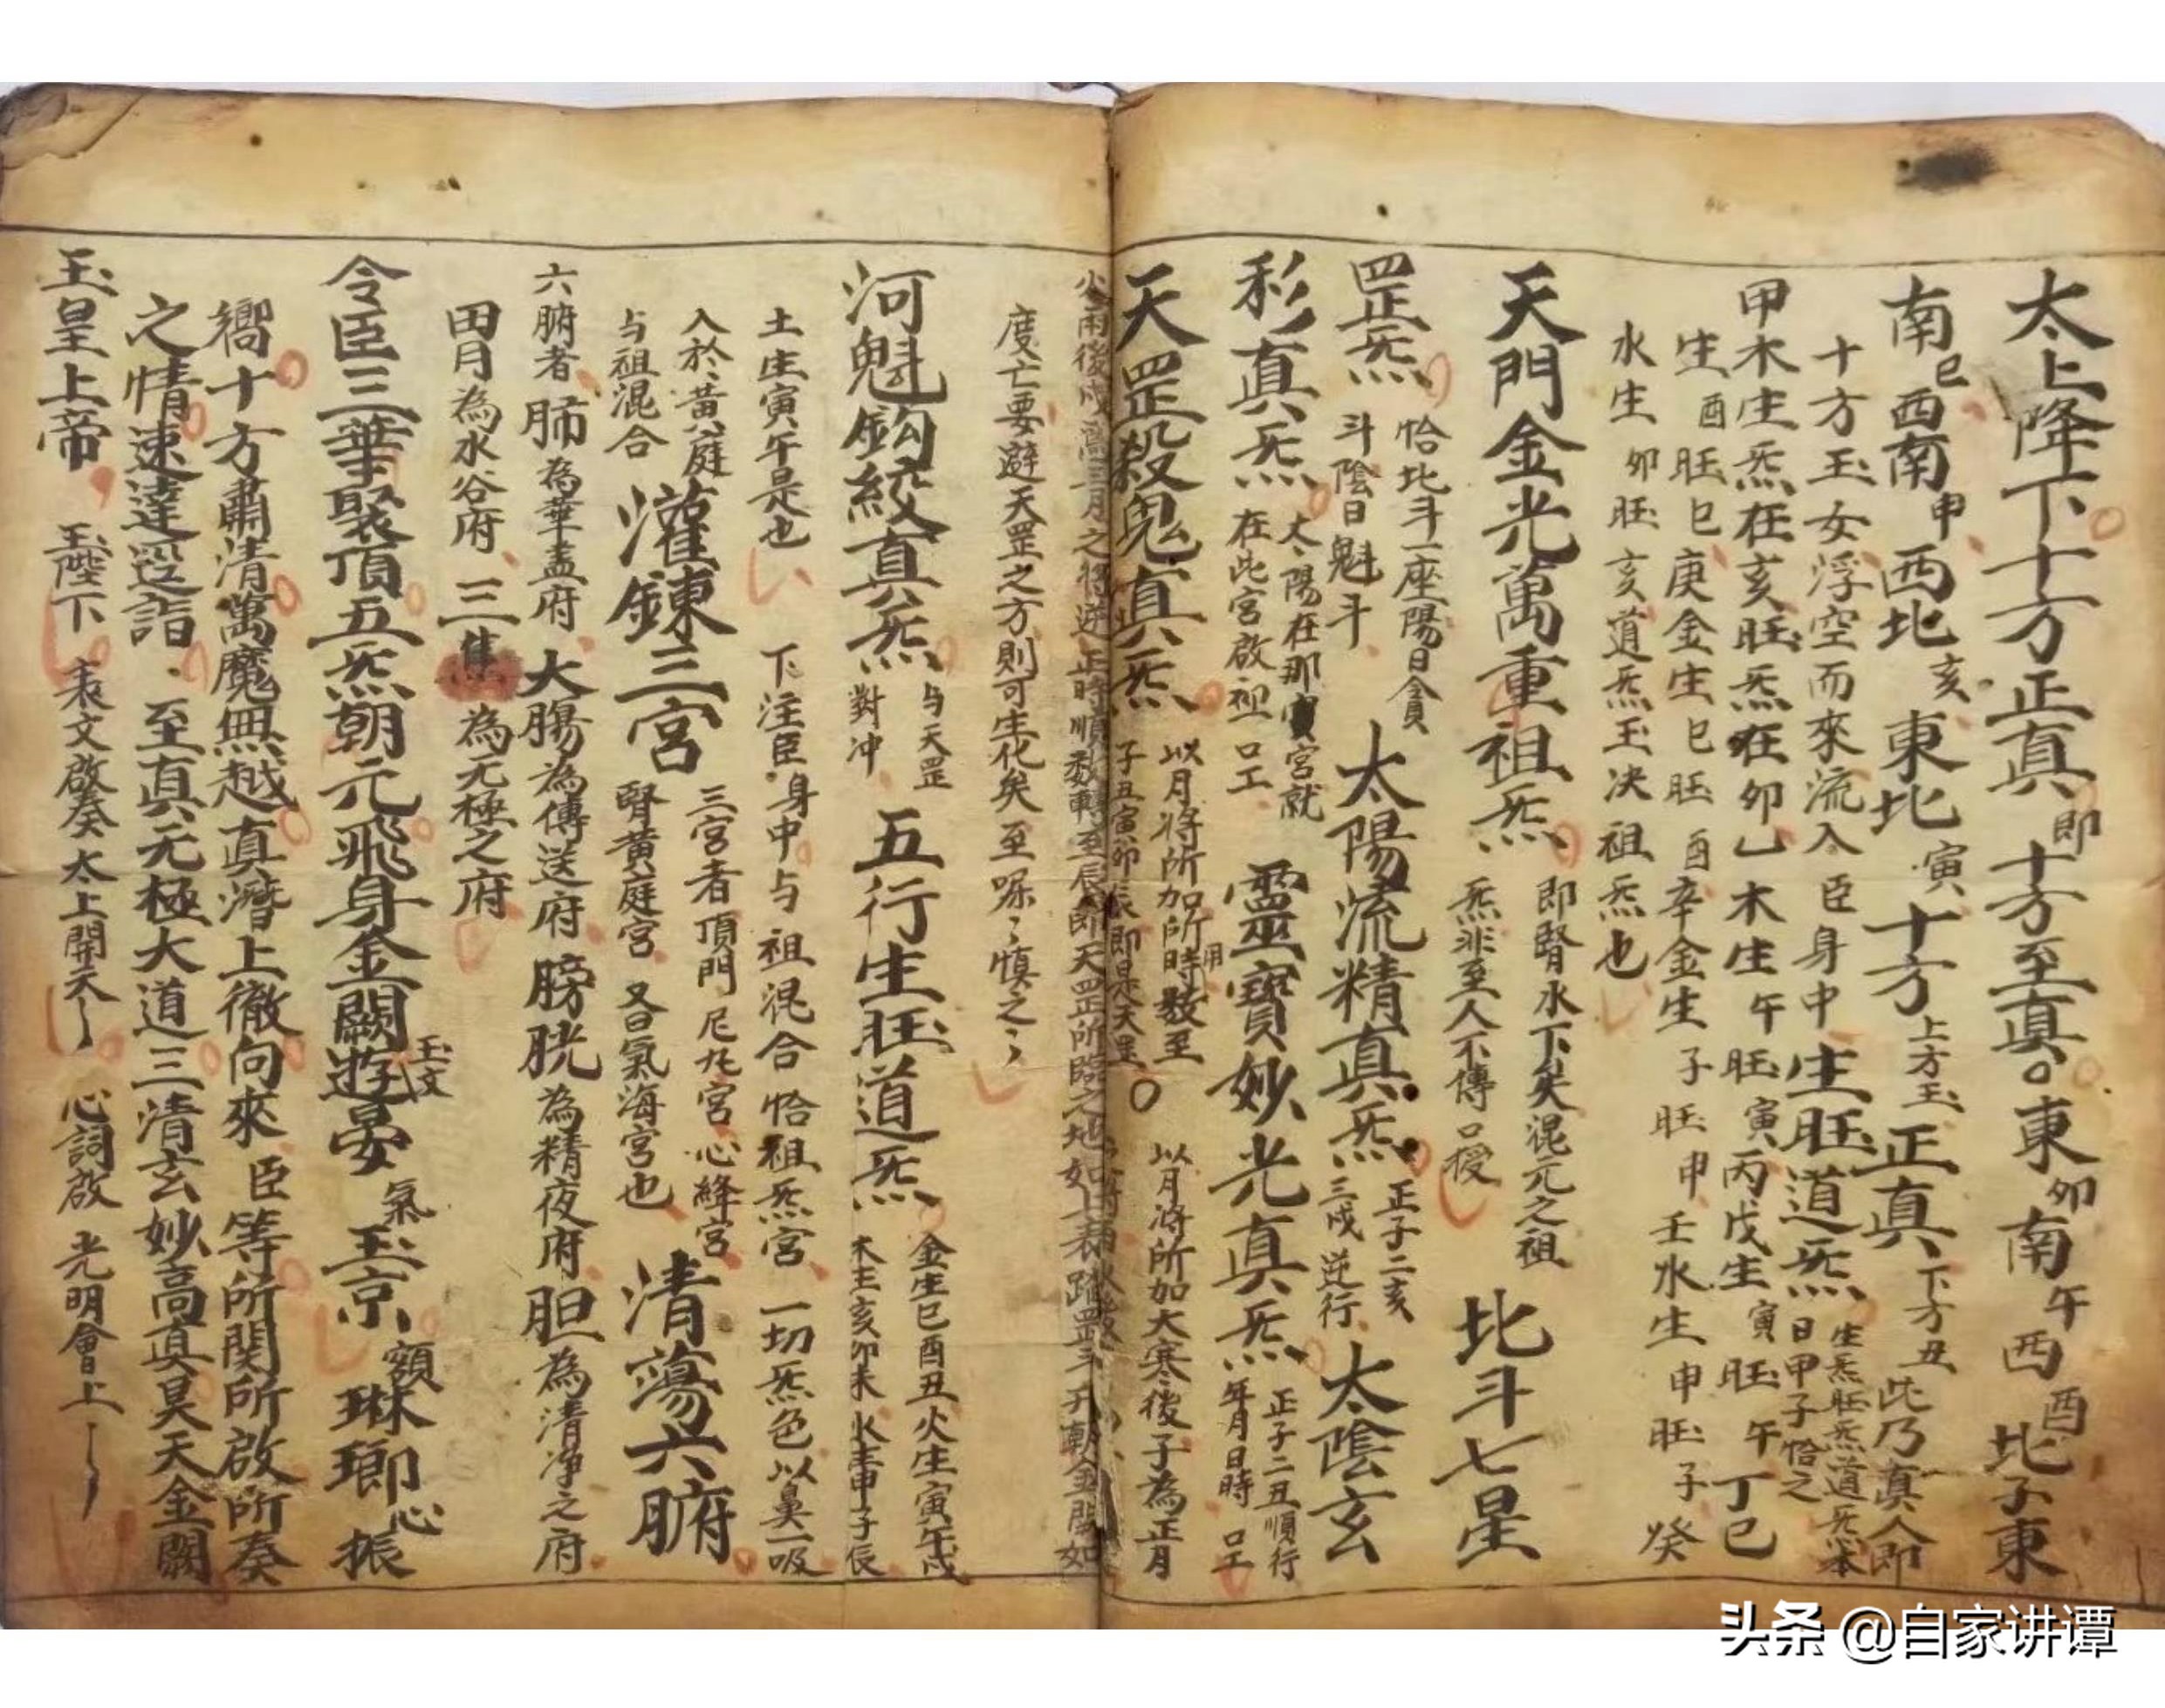 太上降下十方正真即十方至真。東卯南午西酉北子東
南巳西南申西北亥東北寅十方上方玉正真下方丑此乃真人即
十方玉女浮空而來流入臣身中生旺道炁生炁旺炁道炁本
日甲子恰之
甲木生炁在亥旺炁在卯乙木生午旺寅丙戊生寅旺午丁巳
生酉旺巳庚金生巳旺酉辛金生子旺申壬水生申旺子癸
水生卯旺亥道炁玉决祖炁也
天門金光萬重祖炁即腎水下矣混元之祖
炁非至人不傳口授
北斗七星
罡炁恰北斗一座陽日貪
斗陰日魁斗
太陽流精真炁正子二亥
三戌逆行
太陰玄
彩真炁太陽在那寅宮就
在此宮啟祖口工
靈寶妙光真炁正子二丑順行
年月日時口工
天罡殺鬼真炁以月將所加所用時数至
子丑寅卯辰即是天罡
以月將所加大寒後子為正月
度亡要避天罡之方則可生化矣至嘱〻慎之〻
河魁鈎絞真炁与天罡
對冲
五行生旺道炁金生巳酉丑火生寅午戌
木生亥卯未水生申子辰
土生寅午是也下注臣身中与祖混合恰祖炁宮一切炁色以鼻一吸
入於黃庭
与祖混合
灌鍊三宮三宮者頂門尼丸宮心絳宮
腎黃庭宮又曰氣海宮也
清蕩六腑
六腑者肺為華盖府大腸為傳送府膀胱為精夜府胆為清净之府
田月為水谷府三焦為元極之府
令臣三華聚頂五炁朝元飛身金闕遊晏玉文氣玉京額琳瑯心振
嚮十方肅清萬魔無越真潛上徹向來臣等所関所啟所奏
之情速達逕詣至真无極大道三清玄妙高真昊天金闕
玉皇上帝玉陛下表文啟奏太上開天心詞啟光明會上
头条 @自家讲谭